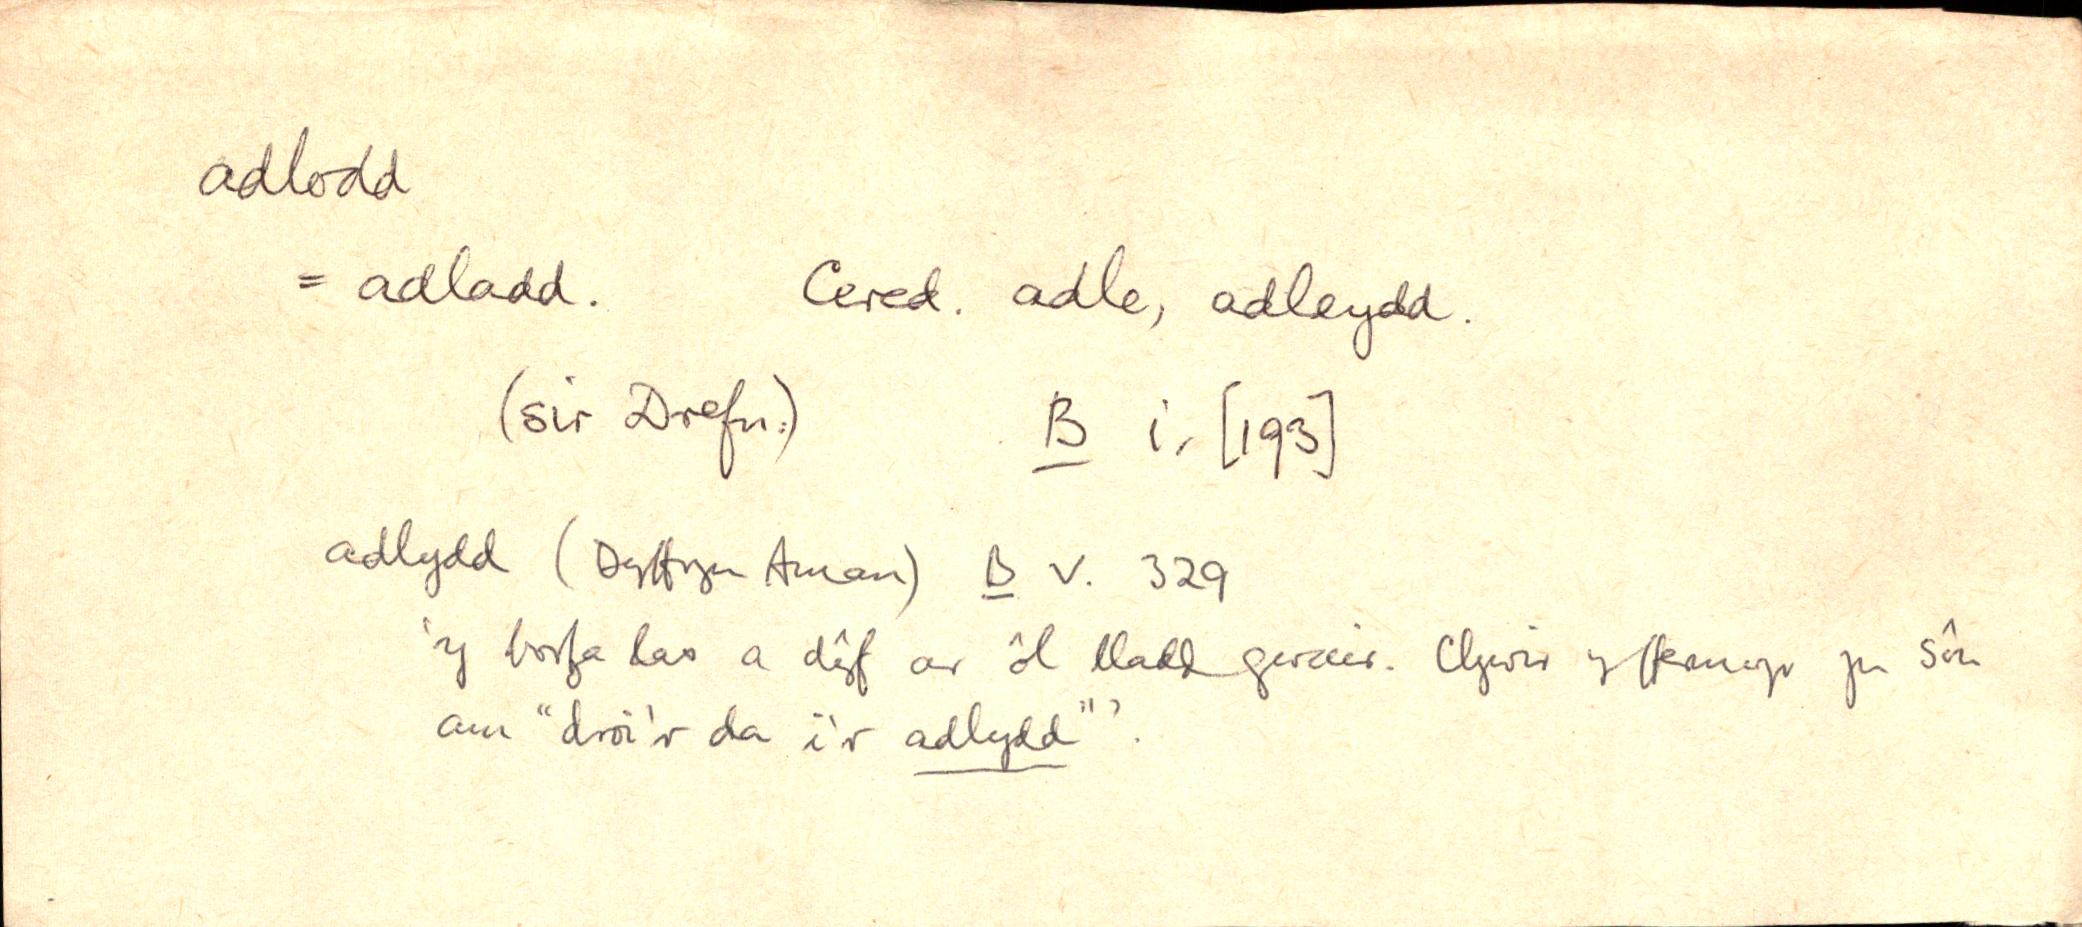 adlodd
= adladd. Cered. adle, adleydd.
(sir Drefn.) B i, [193]
adlydd (Dyffryn Aman) B v. 329
'y borfa las a dŷf ar ôl lladd gwair. Clywir y ffermwyr yn sôn
am "droi'r da i'r adlydd"'.